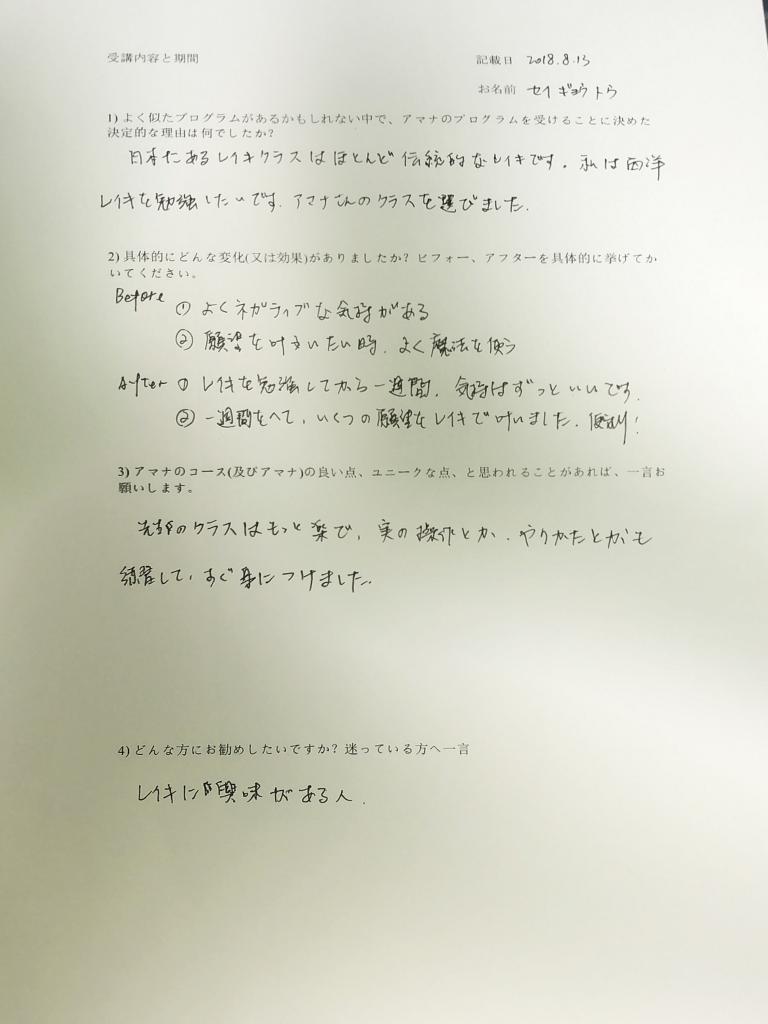 受講内容と期間
記載日 2018.8.13
お名前 セイ ギョウトウ
1) よく似たプログラムがあるかもしれない中で、アマナのプログラムを受けることに決めた
決定的な理由は何でしたか?
日本にあるレイキクラスはほとんど伝統的なレイキです。私は西洋
レイキを勉強したいです。アマナさんのクラスを選びました。
2) 具体的にどんな変化(又は効果)がありましたか? ビフォー、アフターを具体的に挙げてか
いてください。
Before ① よくネガティブな気持がある
② 願望を叶えいたい時、よく魔法を使う
After ① レイキを勉強してから一週間、気持はずっといいです。
② 一週間をへて、いくつの願望をレイキで叶いました。便利!
3) アマナのコース(及びアマナ)の良い点、ユニークな点、と思われることがあれば、一言お
願いします。
のクラスはもっと楽で、実の操作とか、やりかたとかも
練習して、すぐ身につけました。
4) どんな方にお勧めしたいですか? 迷っている方へ一言
レイキに興味がある人.